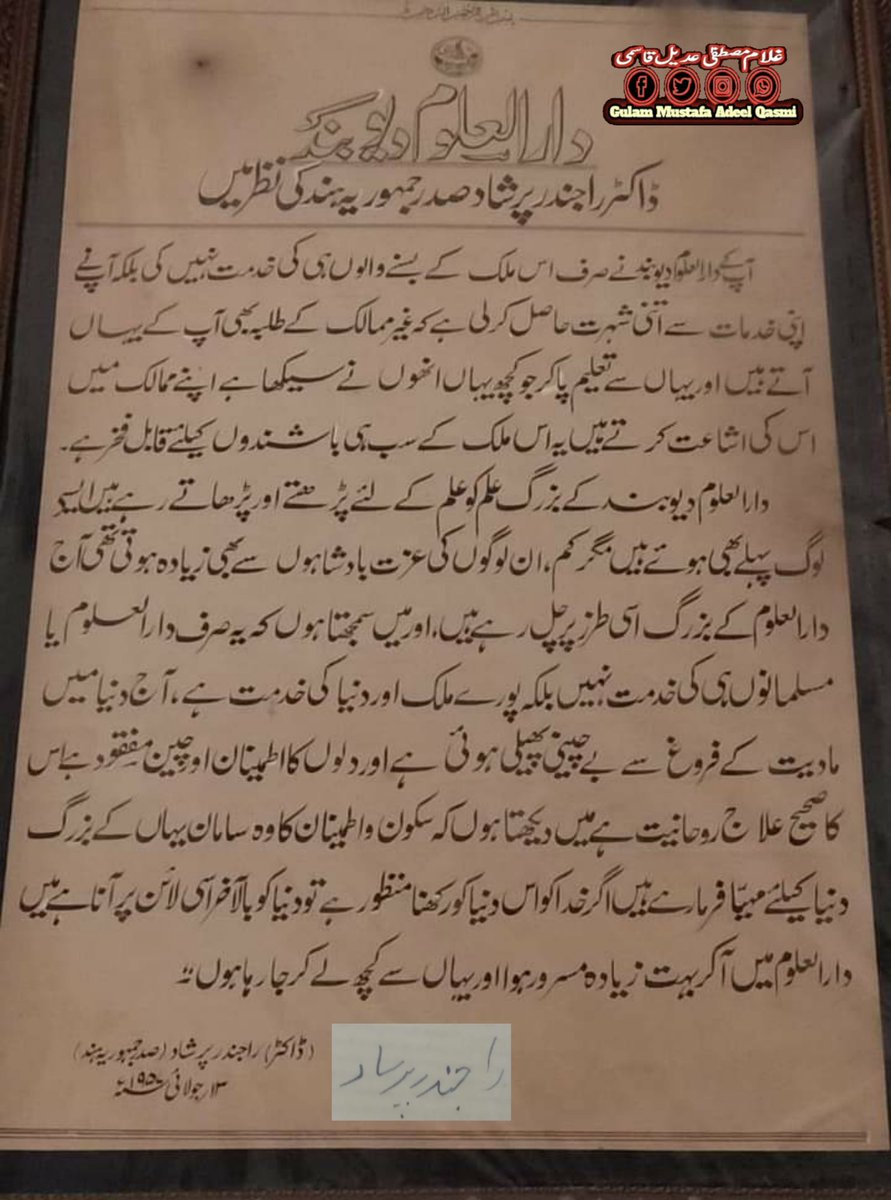 غلام مصطفی عدیل قاسمی
Gulam Mustafa Adeel Qasmi
دارالعلوم دیوبند
ڈاکٹر راجندر پرشاد صدر جمہوریہ ہند کی نظر میں
آپ کے دارالعلوم دیوبند نے صرف اس ملک کے بسنے والوں ہی کی خدمت نہیں کی بلکہ آپ نے
اپنی خدمات سے اتنی شہرت حاصل کرلی ہے کہ غیر ممالک کے طلبہ بھی آپ کے یہاں
آتے ہیں اور یہاں سے تعلیم پاکر جو کچھ یہاں انھوں نے سیکھا ہے اپنے ممالک میں
اس کی اشاعت کرتے ہیں یہ اس ملک کے سب ہی باشندوں کیلئے قابل فخر ہے۔
دارالعلوم دیوبند کے بزرگ علم کو علم کے لئے پڑھتے اور پڑھاتے رہے ہیں ایسے
لوگ پہلے بھی ہوئے ہیں مگر کم، ان لوگوں کی عزت بادشاہوں سے بھی زیادہ ہوتی تھی آج
دارالعلوم کے بزرگ اسی طرز پر چل رہے ہیں، اور میں سمجھتا ہوں کہ یہ صرف دارالعلوم یا
مسلمانوں ہی کی خدمت نہیں بلکہ پورے ملک اور دنیا کی خدمت ہے، آج دنیا میں
مادیت کے فروغ سے بے چینی پھیلی ہوئی ہے اور دلوں کا اطمینان اور چین مفقود ہے اس
کا صحیح علاج روحانیت ہے میں دیکھتا ہوں کہ سکون و اطمینان کا وہ سامان یہاں کے بزرگ
دنیا کیلئے مہیّا فرمارہے ہیں اگر خدا کو اس دنیا کو رکھنا منظور ہے تو دنیا کو بالآخر اسی لائن پر آنا ہے میں
دارالعلوم میں آکر بہت زیادہ مسرور ہوا اور یہاں سے کچھ لے کر جارہا ہوں"
(ڈاکٹر) راجندر پرشاد (صدر جمہوریہ ہند)
۱۳ جولائی ۱۹۵۷ء
راجندر پرساد